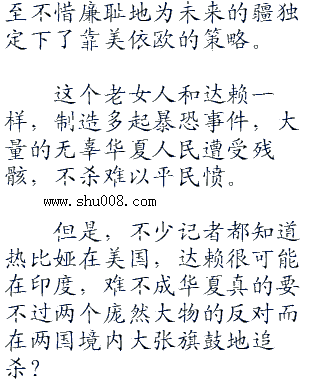 至不惜廉耻地为未来的疆独
定下了靠美依欧的策略。
这个老女人和达赖一
样，制造多起暴恐事件，大
量的无辜华夏人民遭受残
骸，不杀难以平民愤。
www.shu008.com
但是，不少记者都知道
热比娅在美国，达赖很可能
在印度，难不成华夏真的要
不过两个庞然大物的反对而
在两国境内大张旗鼓地追
杀？